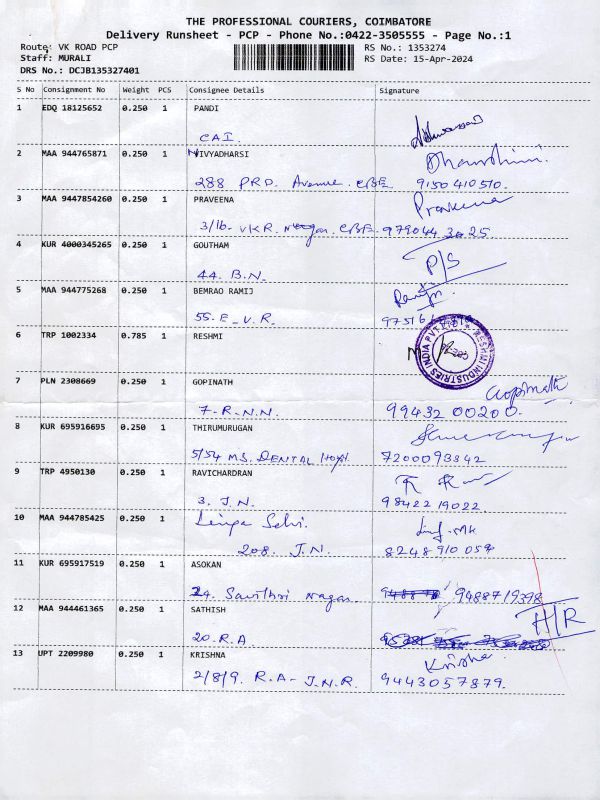 THE PROFESSIONAL COURIERS, COIMBATORE
Delivery Runsheet - PCP - Phone No.:0422-3505555 - Page No.:1
Route: VK ROAD PCP
RS No.: 1353274
Staff: MURALI
RS Date: 15-Apr-2024
DRS No.: DCJB135327401
S No Consignment No Weight PCS Consignee Details Signature
1 EDQ 18125652 0.250 1 PANDI
CAI.
2 MAA 944765871 0.250 1 NIVYADHARSI
288 PRD. Avenue. CBE 9150410510.
3 MAA 9447854260 0.250 1 PRAVEENA Praveena
3/16. VKR. Nagar. CBE. 979044 3025
4 KUR 4000345265 0.250 1 GOUTHAM P/S
44. B.N.
5 MAA 944775268 0.250 1 BEMRAO RAMIJ
55. E.V.R. 97516
6 TRP 1002334 0.785 1 RESHMI
RESHMI INDUSTRIES INDIA PVT.LTD.
7 PLN 2308669 0.250 1 GOPINATH Gopinath
7-R.N.N. 99432 00200.
8 KUR 695916695 0.250 1 THIRUMURUGAN
5/54 M.S. DENTAL 7200093842
9 TRP 4950130 0.250 1 RAVICHARDRAN
3. J.N. 98422 19022
10 MAA 944785425 0.250 1 Selvi.
208. J.N. 8248910058
11 KUR 695917519 0.250 1 ASOKAN
24. Nagar. 9488719398
12 MAA 944461365 0.250 1 SATHISH H/R
20. R.A
13 UPT 2209980 0.250 1 KRISHNA Krisha
2/8/9. R.A- J.N.R. 9443057879.